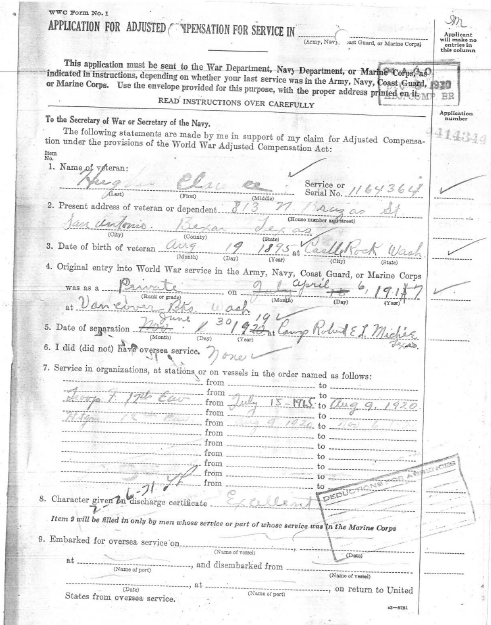 WWC Form No. 1
APPLICATION FOR ADJUSTED COMPENSATION FOR SERVICE IN
(Army, Navy, Coast Guard, or Marine Corps)
Applicant
will make no
entries in
this column
This application must be sent to the War Department, Navy Department, or Marine Corps, as
indicated in instructions, depending on whether your last service was in the Army, Navy, Coast Guard,
or Marine Corps. Use the envelope provided for this purpose, with the proper address printed on it.
READ INSTRUCTIONS OVER CAREFULLY
Application
number
To the Secretary of War or Secretary of the Navy.
The following statements are made by me in support of my claim for Adjusted Compensa-
tion under the provisions of the World War Adjusted Compensation Act:
Item
No.
1. Name of veteran:
Service or
Serial No. 1164364
(Last) (First) (Middle)
2. Present address of veteran or dependent 813 N. Brazos St
(House number and street)
San Antonio Bexar Texas
(City) (County) (State)
3. Date of veteran Aug 19 1895 Castle Rock Wash
(Month) (Day) (Year) (City) (State)
4. Original entry into World War service in the Army, Navy, Coast Guard, or Marine Corps
was as a Private on April 6, 1917
(Rank or grade) (Month) (Day) (Year)
at Vancouver Bks Wash
5. Date of separation June 30 1920 Camp Robert E. L. Michie
(Month) (Day) (Year)
6. I did (did not) have oversea service. None
7. Service in organizations, at stations, or on vessels in the order named as follows:
from to
Troop F. 17th Cav from July 15-1915 to Aug 9, 1920
from to
from to
from to
from to
from to
from to
from to
8. Character given on discharge certificate Excellent
2-26-31
DEDUCTIONS FOR ADVANCES
Item 9 will be filled in only by men whose service or part of whose service was in the Marine Corps
9. Embarked for oversea service on
(Name of vessel) (Date)
at , and disembarked from
(Name of port) (Name of vessel)
, at , on return to United
(Date) (Name of port)
States from oversea service.